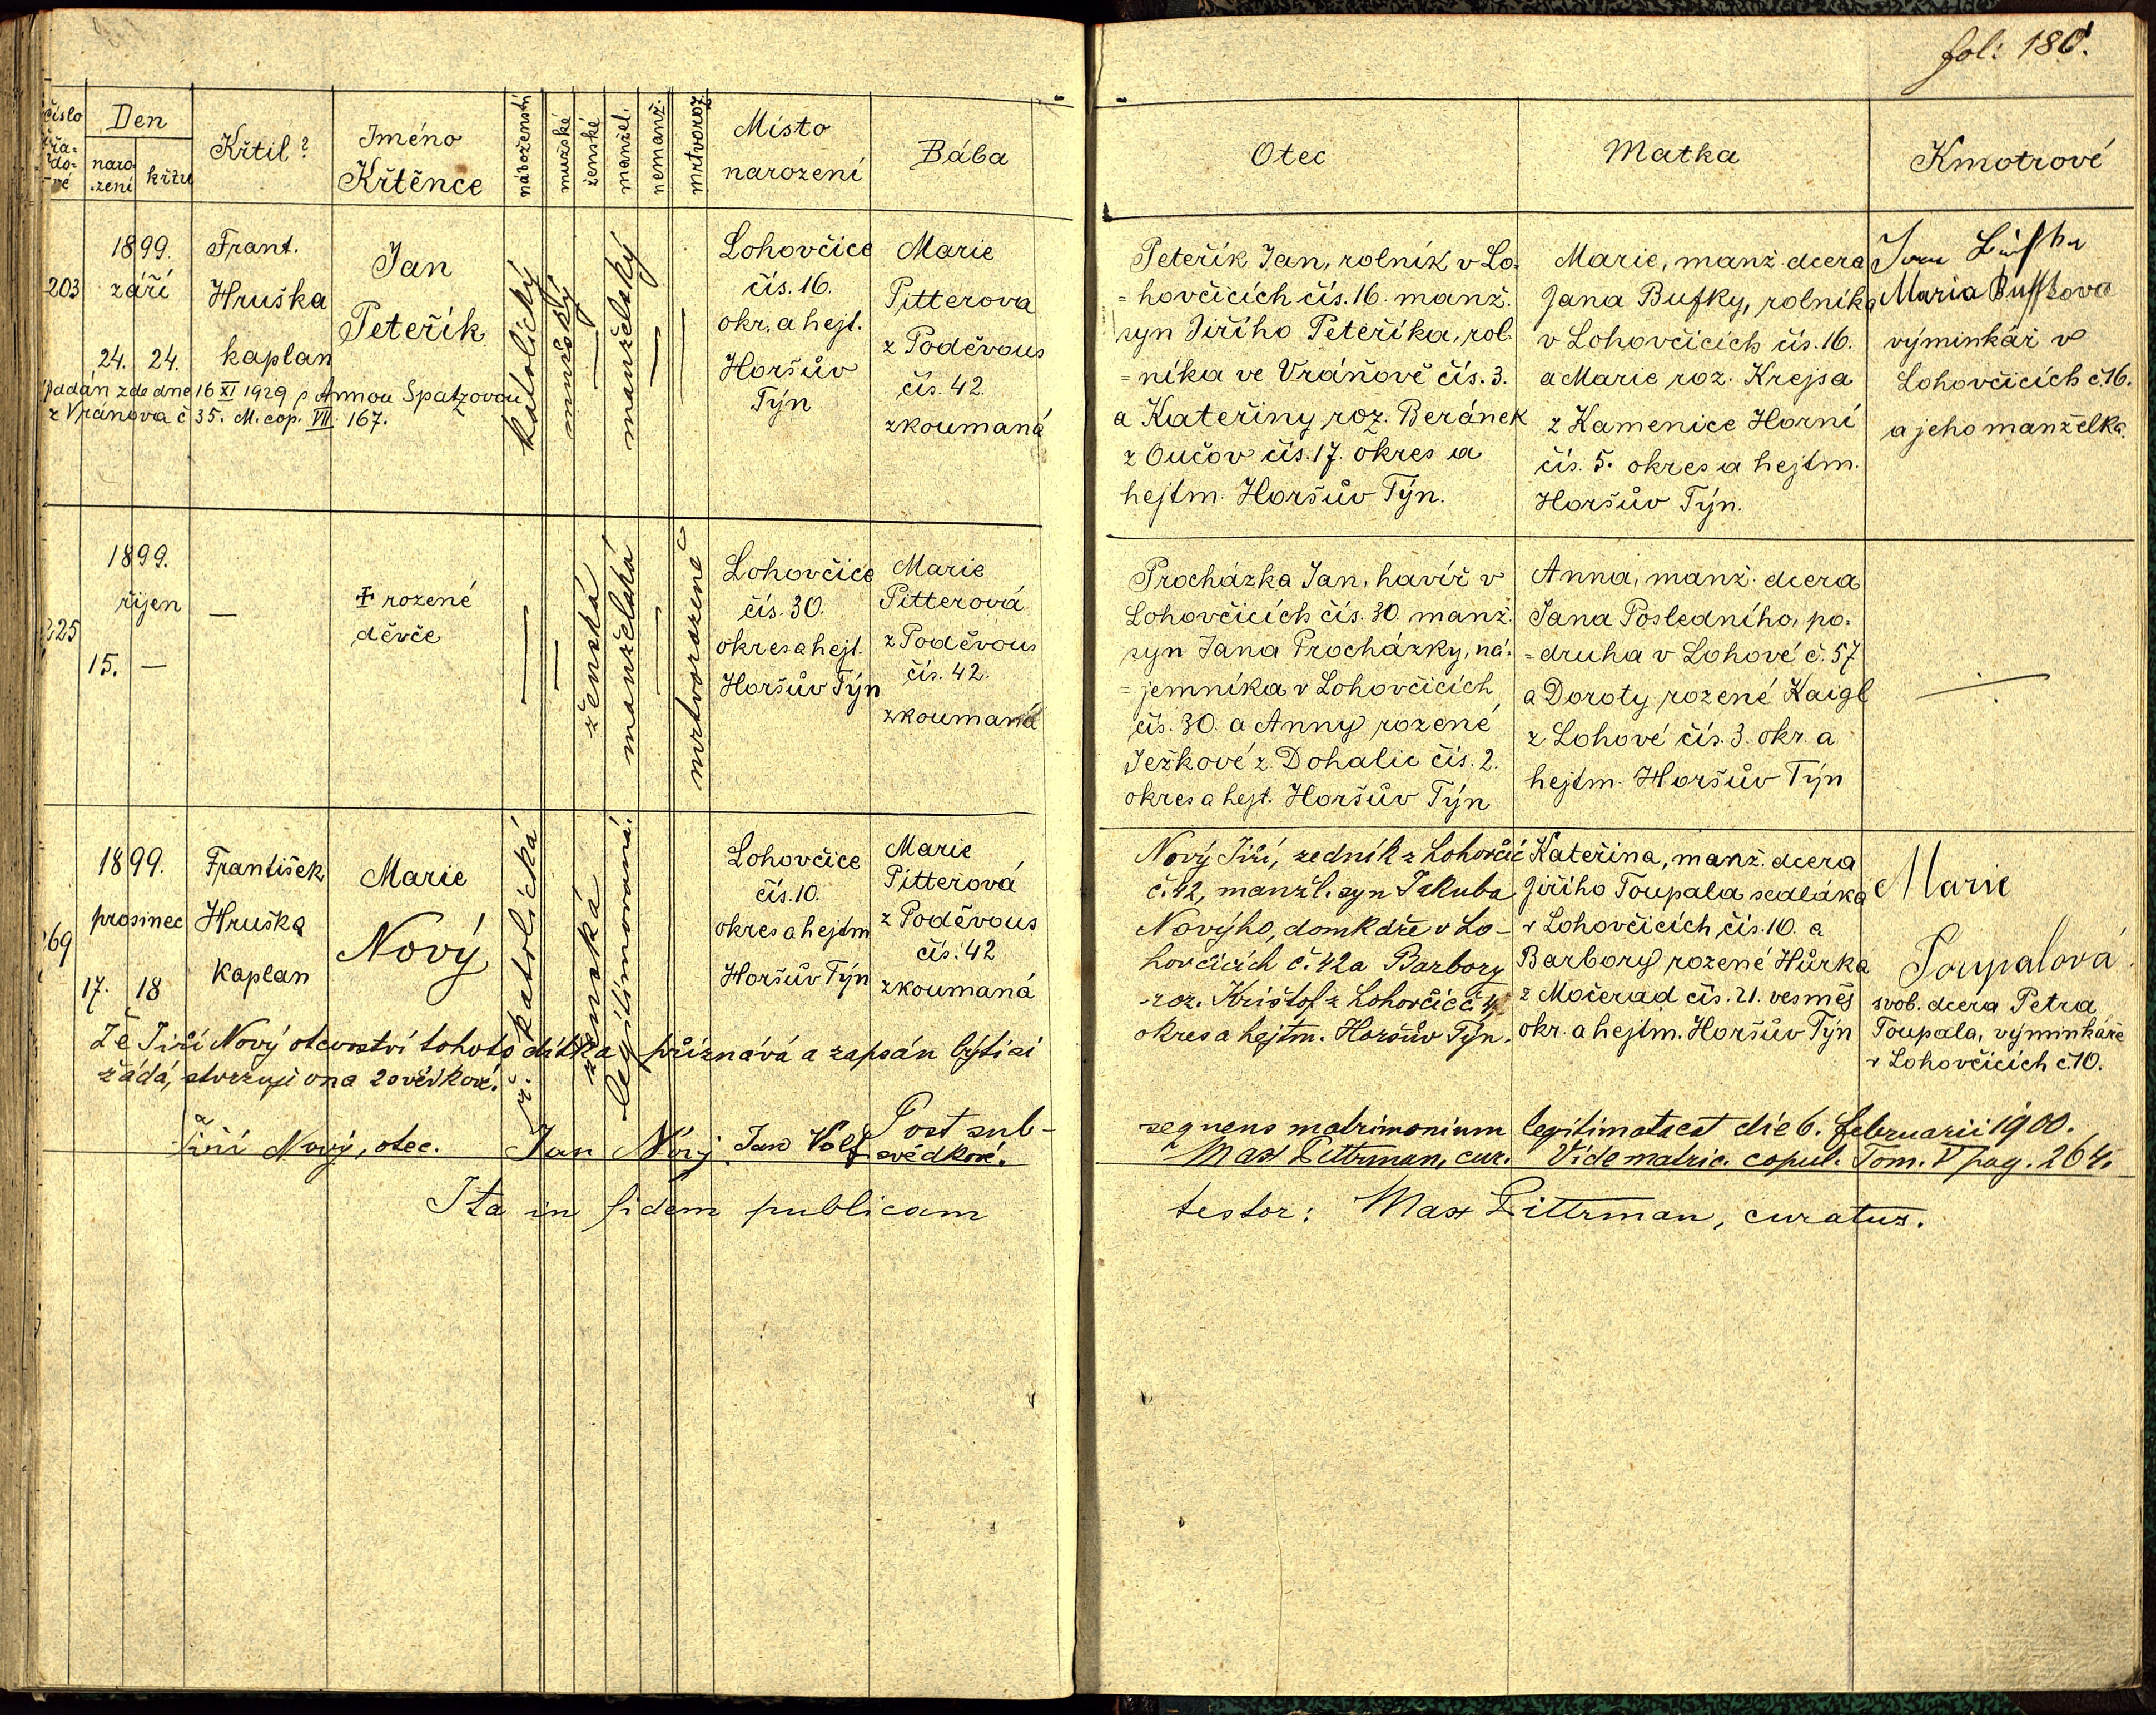 fol: 180.
číslo řa-do-vé
Den
naro-zení
křtu
Křtil?
Jméno
Křtěnce
náboženství
mužské
ženské
manžel.
nemanž.
mrtvoroz.
Místo
narození
Bába
Otec
Matka
Kmotrové
203
1899.
září
24. 24.
Frant.
Hruška
kaplan
Jan
Peteřík
katolický
mužský
—
manželský
—
—
Lohovčice
čís. 16.
okr. a hejt.
Horšův
Týn
Marie
Pitterova
z Poděvous
čís. 42.
zkoumaná
Peteřík Jan, rolník v Lo-
=hovčicích čís. 16. manž.
syn Jiřího Peteříka, rol-
=níka ve Vráňově čís. 3.
a Kateřiny roz. Beránek
z Oučov čís. 17. okres a
hejtm. Horšův Týn.
Marie, manž. dcera
Jana Bufky, rolníka
v Lohovčicích čís. 16.
a Marie roz. Krejsa
z Kamenice Horní
čís. 5. okres a hejtm.
Horšův Týn.
Maria Buffkova
výminkář v
Lohovčicích č. 16.
a jeho manželka.
Oddán zde dne 16 XI 1929 s Annou Spatzovou
z Vránova č 35. M. cop. VII. 167.
225
1899.
říjen
15. —
—
✝ rozené
děvče
—
—
ženská
manželská
—
mrtvorozené
Lohovčice
čís. 30.
okres a hejt.
Horšův Týn
Marie
Pitterová
z Poděvous
čís. 42.
zkoumaná
Procházka Jan, havíř v
Lohovčicích čís. 30. manž.
syn Jana Procházky, ná-
=jemníka v Lohovčicích
čís. 30. a Anny rozené
Ježkové z Dohalic čís. 2.
okres a hejt. Horšův Týn
Anna, manž. dcera
Jana Posledního, po-
=druha v Lohové č. 57
a Doroty rozené Kaigl
z Lohové čís. 3. okr. a
hejtm. Horšův Týn
269
1899.
prosinec
17. 18
František
Hruška
kaplan
Marie
Nový
ř. katolická
ženská
legitimovaná.
Lohovčice
čís. 10.
okres a hejtm
Horšův Týn
Marie
Pitterová
z Poděvous
čís. 42
zkoumaná
Nový Jiří, zedník z Lohovčic
č. 42, manžl. syn Jakuba
Nového, domkáře v Lo-
hovčicích č. 42 a Barbory
roz. Krištof z Lohovčic č. 4,
okres a hejtm. Horšův Týn.
Kateřina, manž. dcera
Jiřího Toupala sedláka
v Lohovčicích čís. 10. a
Barbory rozené Hůrka
z Močerad čís. 21. vesměs
okr. a hejtm. Horšův Týn
Marie
Toupalová
svob. dcera Petra
Toupala, výminkáře
v Lohovčicích č. 10.
Že Jiří Nový otcovství tohoto dítka přiznává a zapsán býti si
žádá, stvrzují on a 2 svědkové.
Jiří Nový, otec. Jan Nový Jan Volf svědkové.
Post sub-
sequens matrimonium legitimata est die 6. februarii 1900.
Max Pittrman, cur. Vide matric. copul. Tom. V pag. 264.
Ita in fidem publicam testor: Max Pittrman, curatus.